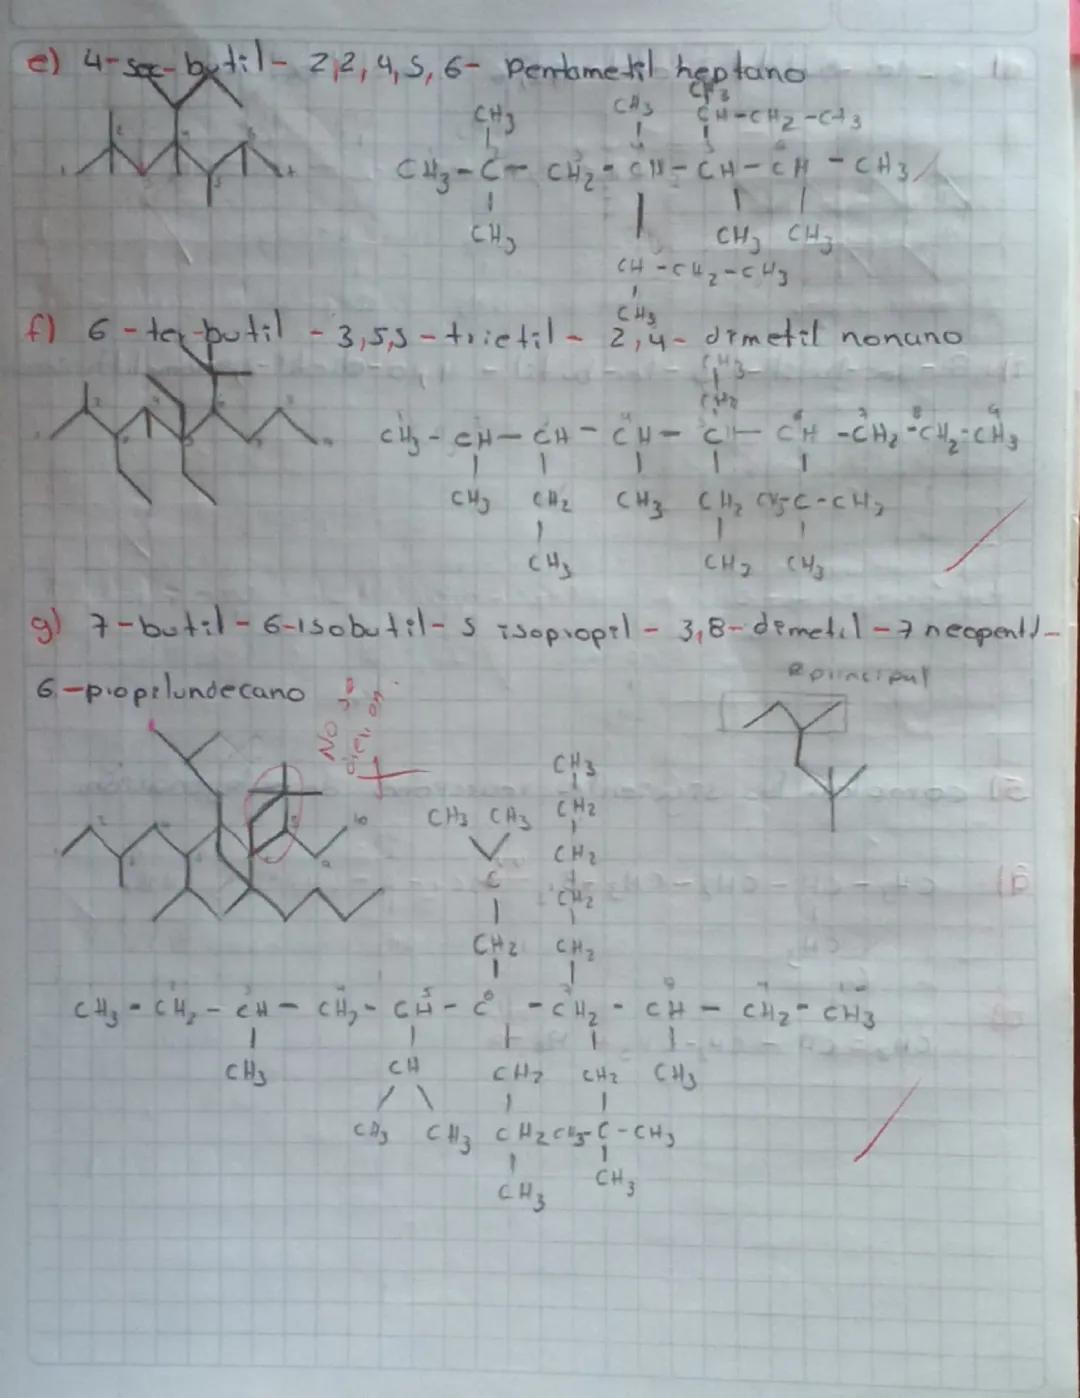 e) 4-sec-butil- 2,2,4,5,6- Pentametil heptano
CH3 CH3 CH3
CH-CH2-CH3
CH3-C- CH2-CH-CH-CH-CH3
CH3 CH3 CH3
CH-CH2-CH3
CH3
f) 6-ter-butil -3,5,5-trietil- 2,4- dimetil nonano
CH3
CH2
CH3-CH-CH-CH-C-CH-CH2-CH2-CH3
CH3 CH2 CH3 CH2 CH3-C-CH3
CH3 CH3 CH3
g) 7-butil-6-isobutil-5 isopropil- 3,8-dimetil-7 neopentil-
6-propilundecano
principal
No
CH3
CH3 CH3 CH2
CH2
C CH2
CH2 CH2
CH3-CH2-CH-CH2-CH-C-CH2-CH-CH2-CH3
CH3 CH CH2 CH2 CH3
CH3 CH3 CH2 CH3-C-CH3
CH3 CH3